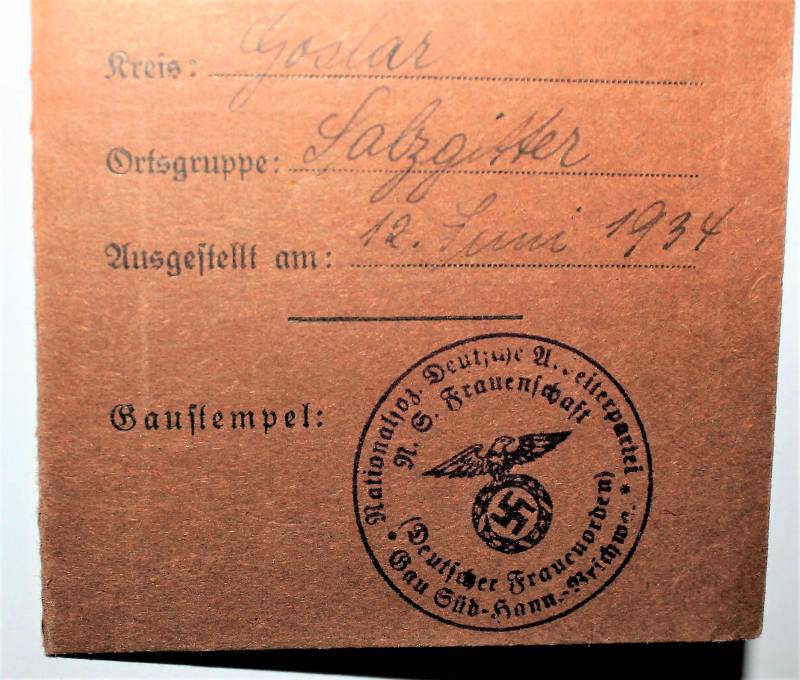 Kreis: Goslar
Ortsgruppe: Salzgitter
Ausgestellt am: 12. Juni 1934
Gaustempel:
Nationalsoz. Deutsche Arbeiterpartei
N. S. Frauenschaft
(Deutscher Frauenorden)
Gau Süd-Hann.-